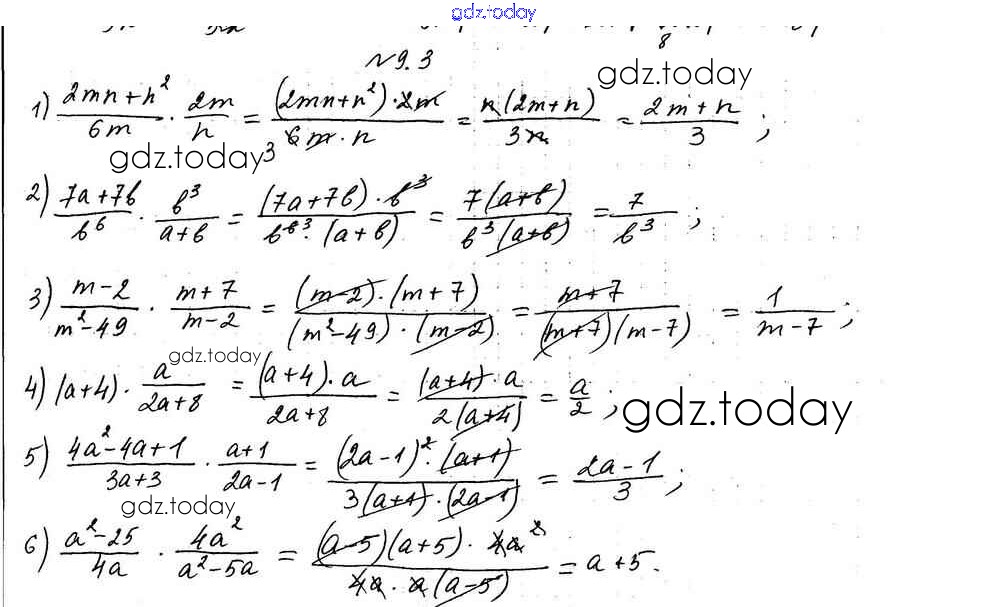 gdz.today
8
N9.3
gdz.today
1) (2mn+n²)/(6m) · (2m)/n = ((2mn+n²)·2m)/(6m·n) = (n(2m+n))/(3n) = (2m+n)/3 ;
gdz.today 3
2) (7a+7b)/b⁶ · b³/(a+b) = ((7a+7b)·b³)/(b⁶ ³·(a+b)) = (7(a+b))/(b³(a+b)) = 7/b³ ;
3) (m-2)/(m²-49) · (m+7)/(m-2) = ((m-2)·(m+7))/((m²-49)·(m-2)) = (m+7)/((m+7)(m-7)) = 1/(m-7) ;
gdz.today
4) (a+4) · a/(2a+8) = ((a+4)·a)/(2a+8) = ((a+4)·a)/(2(a+4)) = a/2 ;
gdz.today
5) (4a²-4a+1)/(3a+3) · (a+1)/(2a-1) = ((2a-1)²·(a+1))/(3(a+1)·(2a-1)) = (2a-1)/3 ;
gdz.today
6) (a²-25)/(4a) · (4a²)/(a²-5a) = ((a-5)(a+5)·4a²)/(4a·a(a-5)) = a+5.